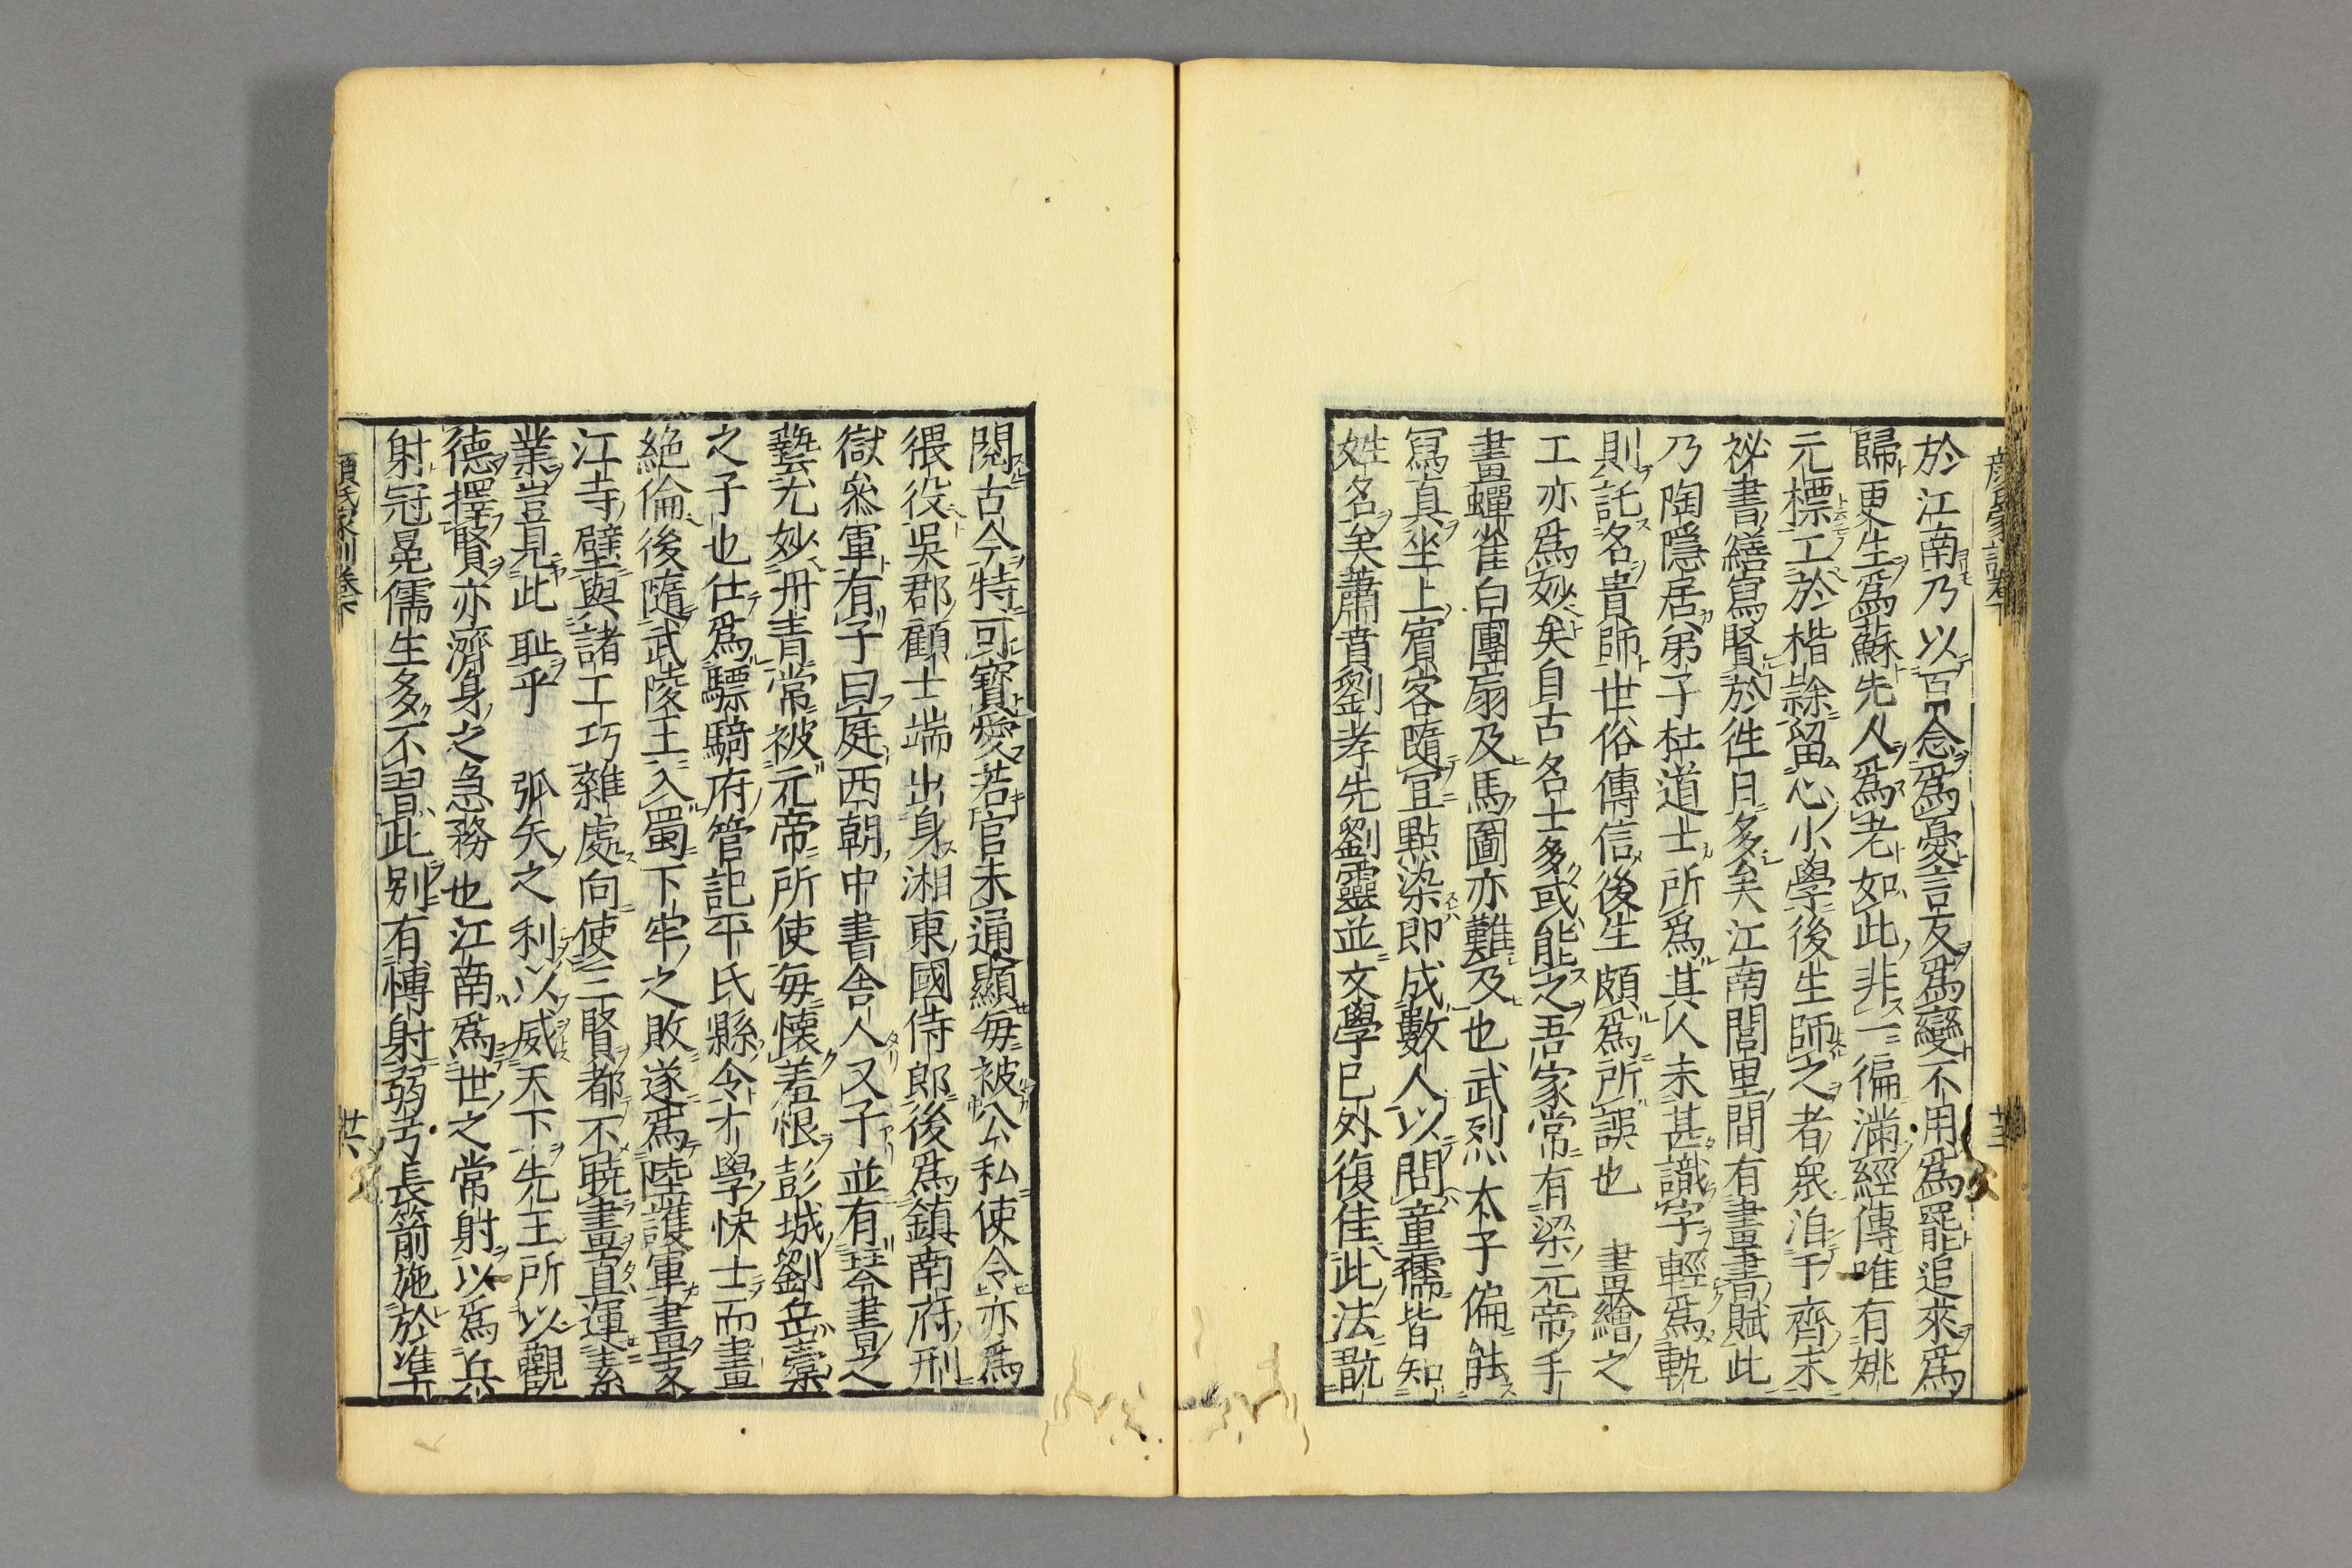 於江南乃以百念爲憂言反爲變不用爲罷追來爲
歸更生爲蘇先人爲老如此非一徧滿經傳唯有姚
元標工於楷隸留心小學後生師之者衆洎于齊末
祕書繕寫賢於徃日多矣江南閭里間有畫書賦此
乃陶隱居弟子杜道士所爲其人未甚識字輕爲軌
則託名貴師世俗傳信後生頗爲所誤也 畫繪之
工亦爲妙矣自古名士多或能之吾家常有梁元帝手
畫蟬雀白團扇及馬圖亦難及也武烈太子偏能
寫真坐上賓客隨宜點染即成數人以問童孺皆知
姓名矣蕭賁劉孝先劉靈並文學已外復佳此法翫
閱古今特可寶愛若官未通顯每被公私使令亦爲
猥役吳郡顧士端出身湘東國侍郎後爲鎮南府刑
獄叅軍有子曰庭西朝中書舍人父子並有琴書之
藝尤妙丹青常被元帝所使每懷羞恨彭城劉岳橐
之子也仕爲驃騎府管記平氏縣令才學快士而畫
絶倫後隨武陵王入蜀下牢之敗遂爲陸護軍畫支
江寺壁與諸工巧雜處向使三賢都不曉畫直運素
業豈見此耻乎 弧矢之利以威天下先王所以觀
德擇賢亦濟身之急務也江南爲世之常射以爲兵
射冠冕儒生多不習此别有博射弱弓長箭施於準
顔氏家訓卷下